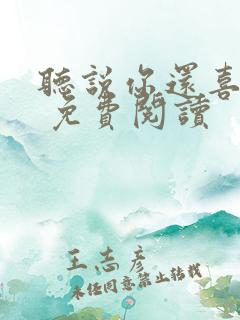 聽說你還喜
免費閱讀
王志彥
未經同意禁止轉載